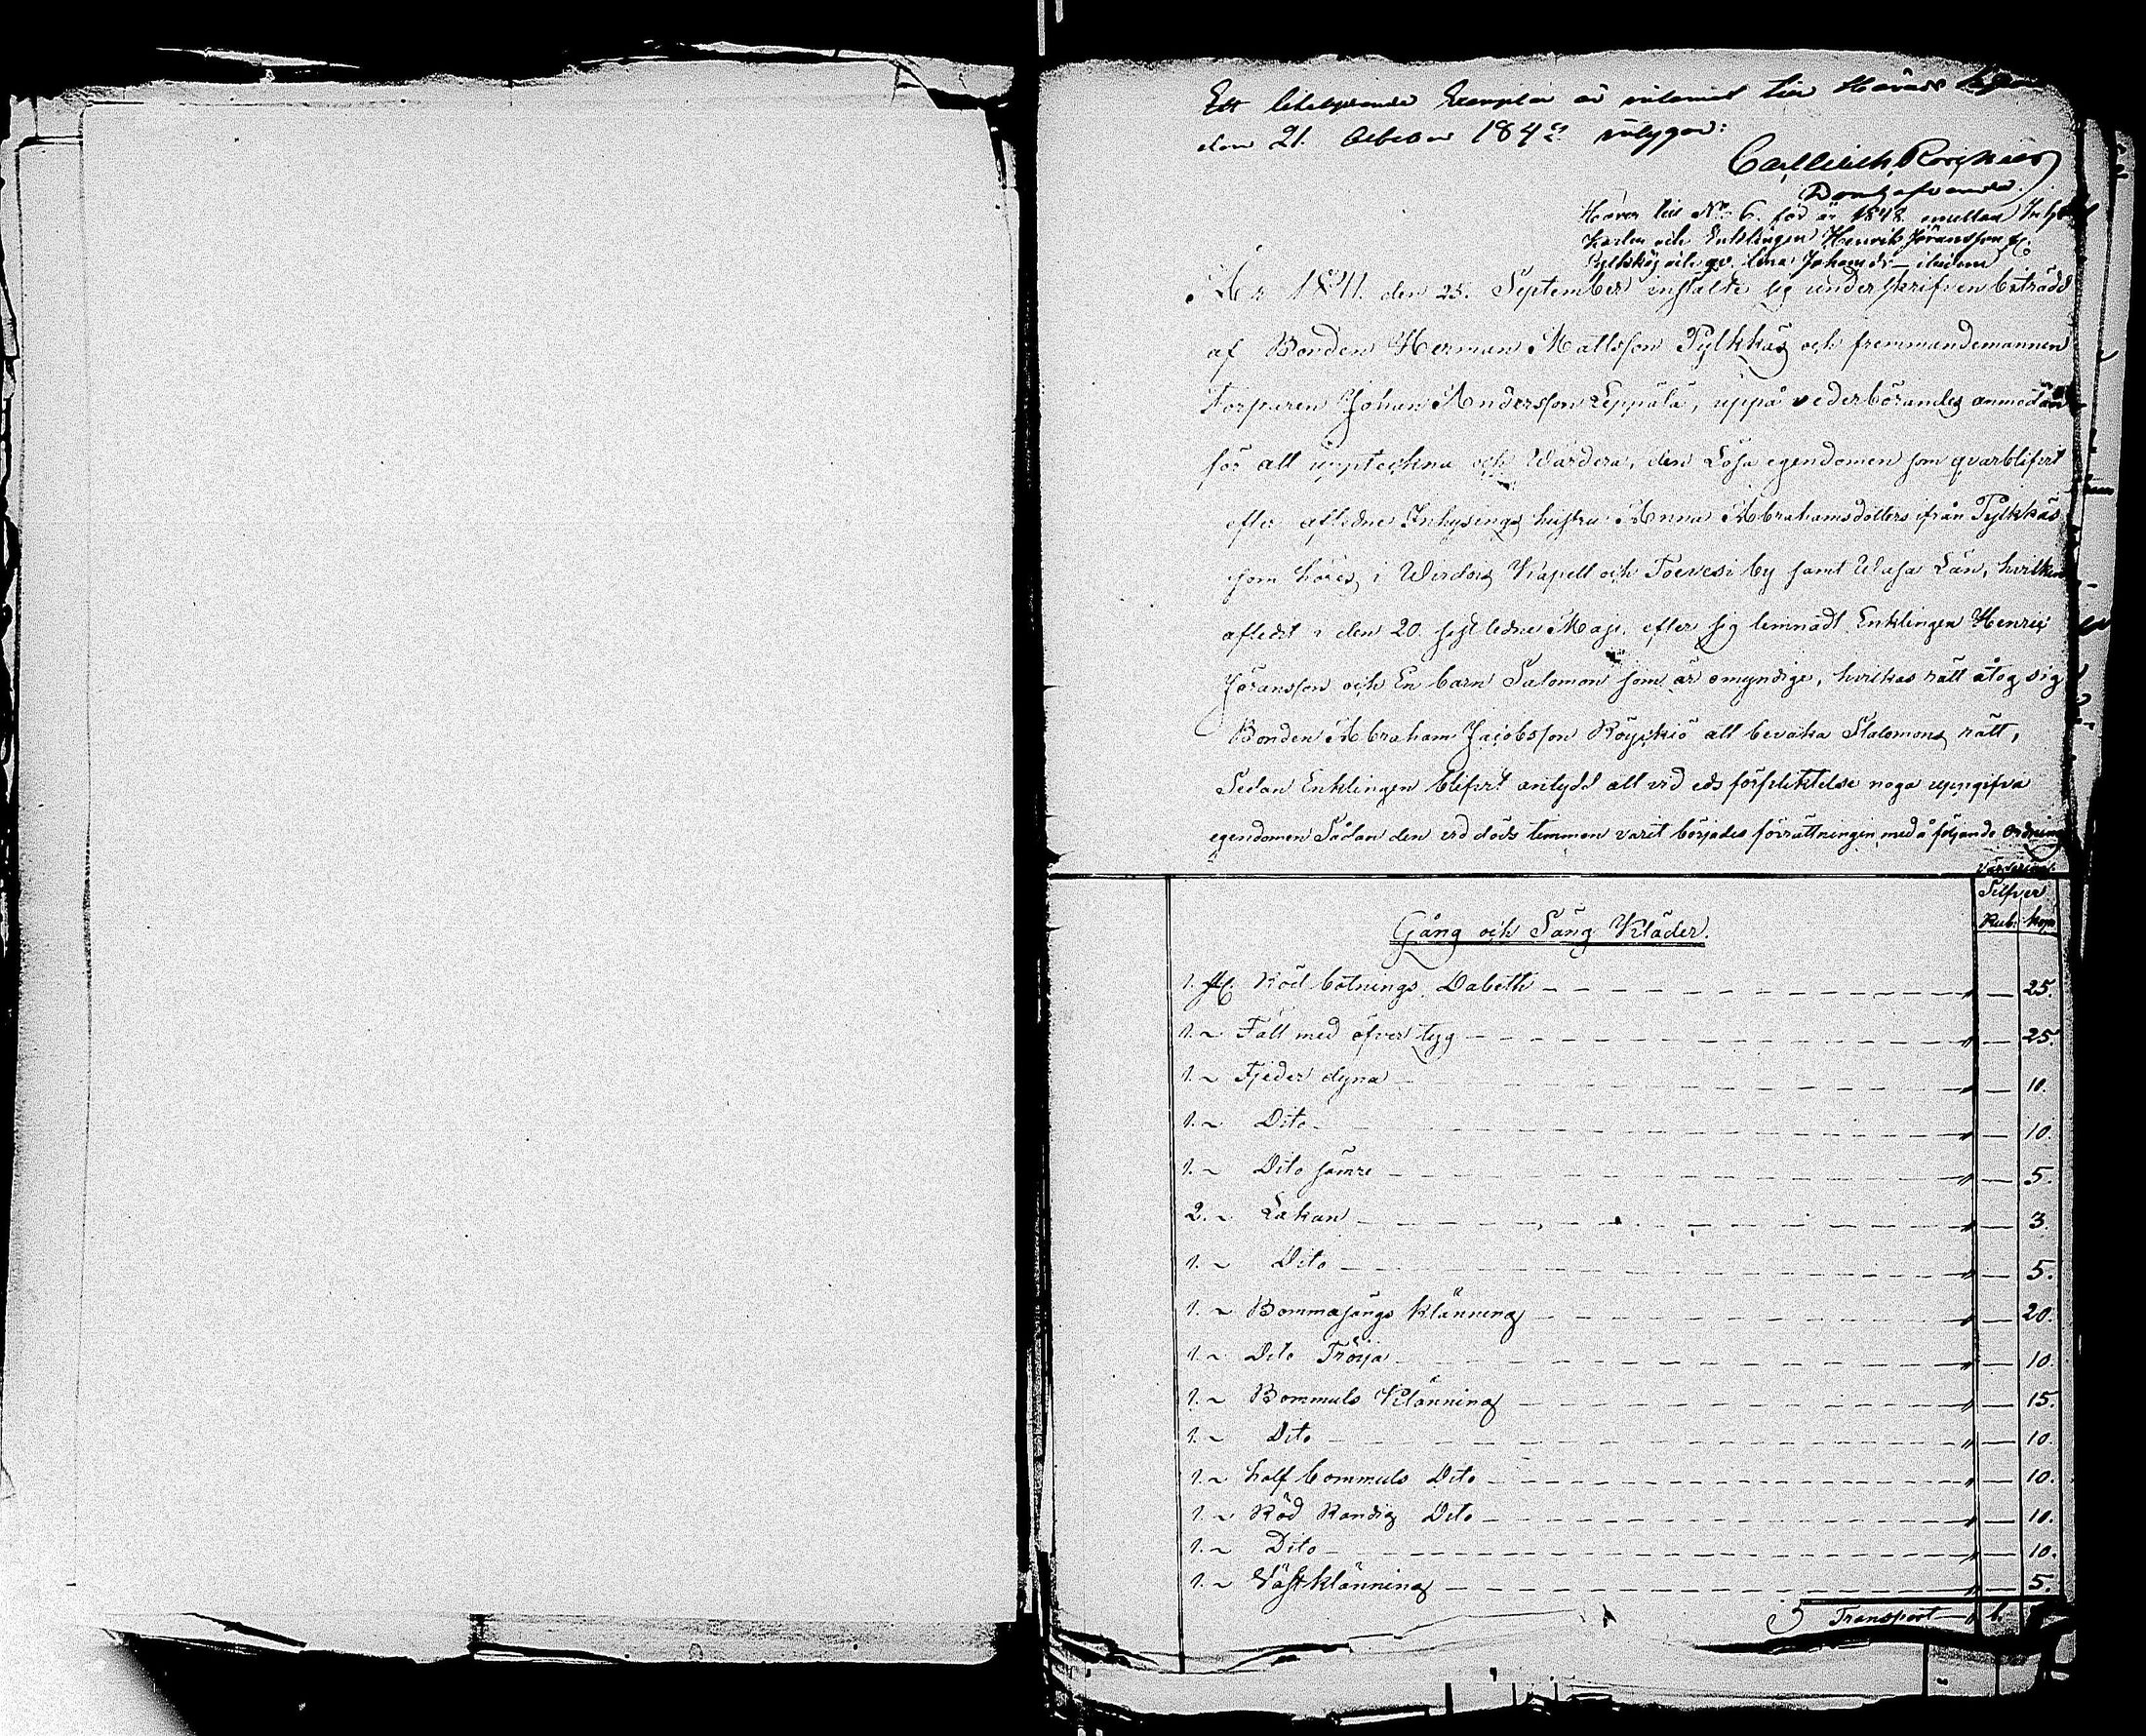 Ett Exemplar är inlemnat till Härads
den 21. October 184 intygar:
Domhafvande.
Hörer till No 6. för år 1848. emellan
Karlen och Enklingen Henrik Jöransson fr.
Pylkkäs och qv. Lena Johansdr - ibidem
År 1841. den 25. September instälte sig underskrifven biträdd
af Bonden Herman Mattsson Pylkkäs och fremmandemannen
Torparen Johan Andersson Leppälä, uppå vederbörandes anmodan
för att uppteckna och Wärdera, den Lösa egendomen som qvarblifvit
efter afledne Inhysings hustru Anna Abrahamsdotters ifrån Pylkkäs
som hörer i Wirdois Kapell och Toivesi by samt Wasa Län, hvilken
afledit i den 20 sistledne Maji, efter sig lemnadt Enklingen Henric
Jöransson och En barn Salomon som är omyndige, hvilkas rätt åtog sig
Bonden Abraham Jacobsson Röyskiö att bevaka Salomons rätt,
Sedan Enklingen blifvit antydd att vid eds förpliktelse noga uppgifva
egendomen Sådan den vid döds timmen varit börjades förrättningen, med å följande ordning
Värderingt
Silfver
Rub. Kop
Gång och Säng Kläder.
1. st. Röd botnings Dabette 25.
1. ~ Fäll med öfver tyg 25.
1. ~ Fjeder dyna 10.
1. ~ Dito 10.
1. ~ Dito sämre 5.
2. ~ Lakan 3.
1. ~ Dito 5.
1. ~ Bommasängs Klänning 20.
1. ~ Dito Tröija 10.
1. ~ Bommuls Klänning 15.
1. ~ Dito 10.
1. ~ half bommuls Dito 10.
1. ~ Röd Randig Dito 10.
1. ~ Dito 10.
1. ~ Västklänning 5.
Transport